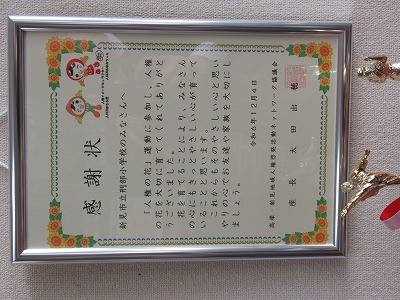 感謝状
新見市立刑部小学校のみなさんへ
「人権の花」運動に参加し、人権
の花を大切に育ててくれてありがと
うございました。
花を育てることにより、みなさん
の心にもきっとやさしい心が育って
いることと思います。
これからもそのやさしい心と思い
やりの心でお友達や家族を大切にし
ましょう。
令和6年12月4日
高梁・新見地域人権啓発活動ネットワーク協議会
座長 太田出穂